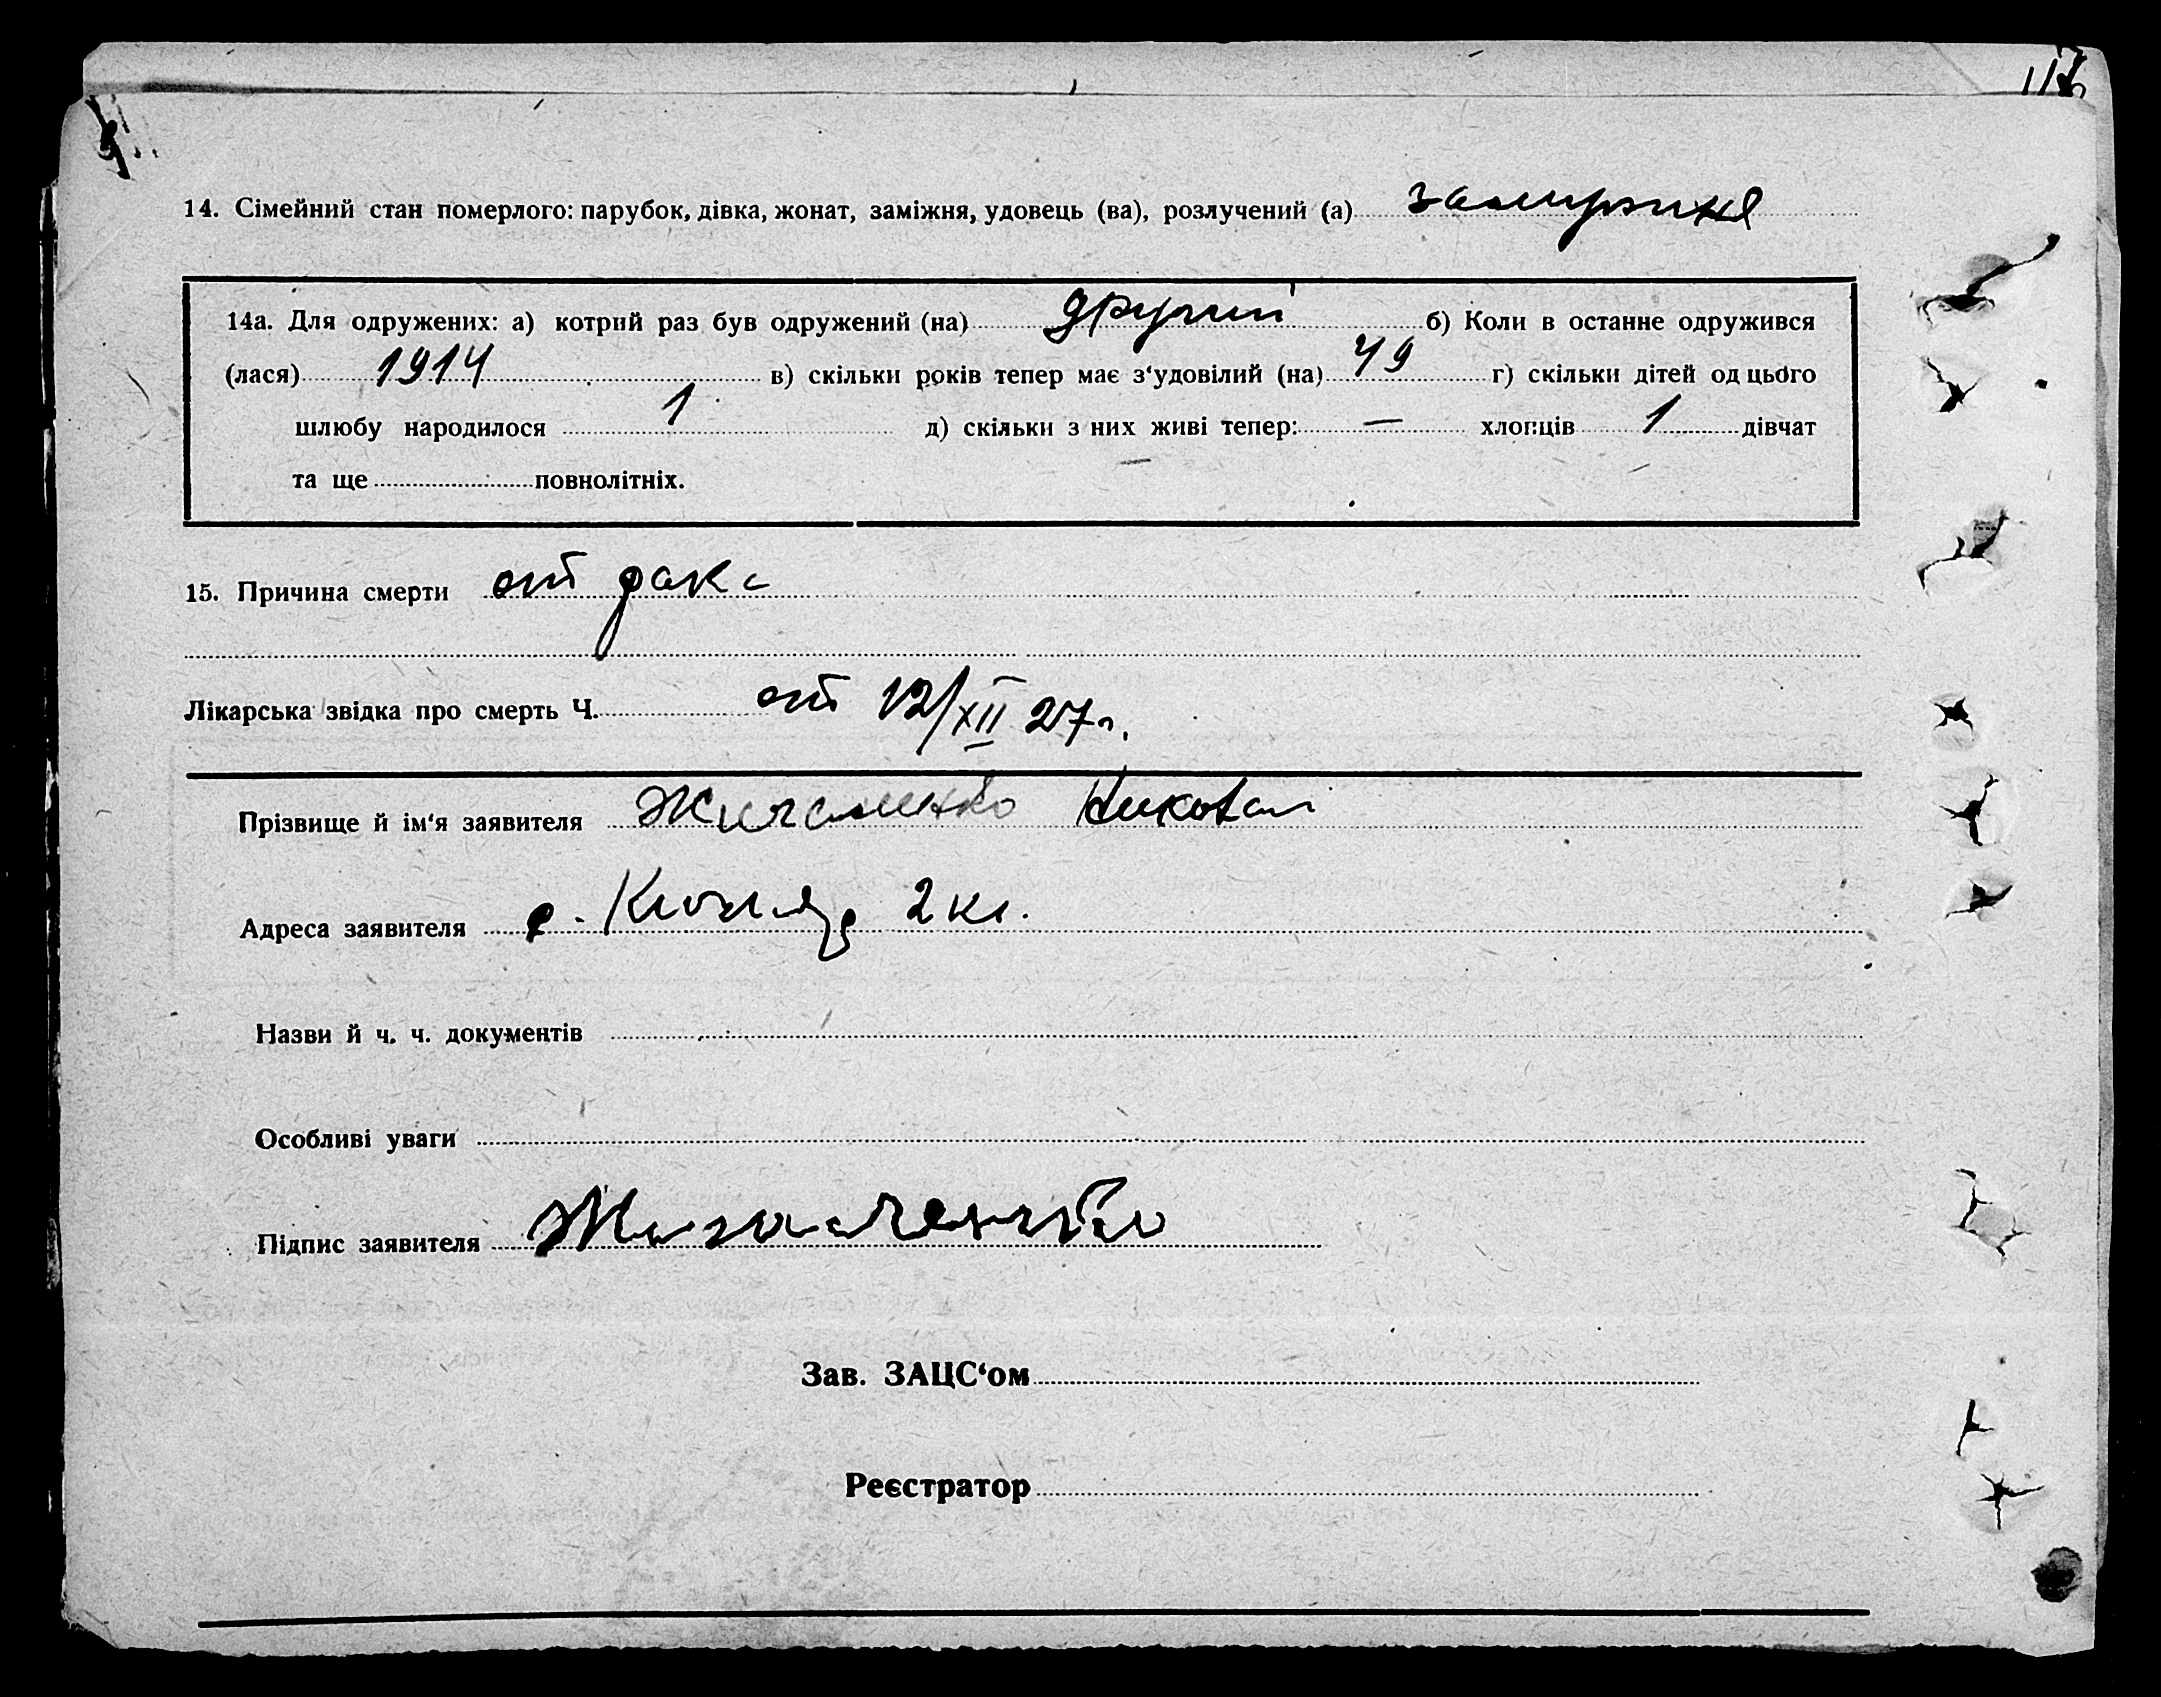 14. Сімейний стан померлого: парубок, дівка, жонат, заміжня, удовець (ва), розлучений (а)
14а. Для одружених: а) котрий раз був одружений (на) другий б) Коли в останнє одружився
(лася) 1914 в) скільки років тепер має з‘удовілий (на) 49 г) скільки дітей од цього
шлюбу народилося 1 д) скільки з них живі тепер: — хлопців 1 дівчат
та ще повнолітніх.
15. Причина смерти от рака
Лікарська звідка про смерть Ч. от 12/XII 27г.
Прізвище й ім‘я заявителя
Адреса заявителя с. 2 кл.
Назви й ч. ч. документів
Особливі уваги
Підпис заявителя
Зав. ЗАЦС‘ом
Реєстратор